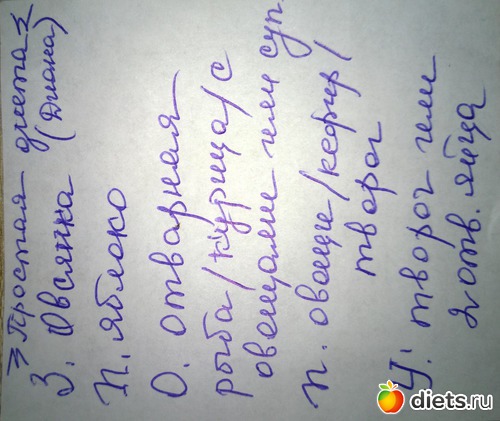 Простая диета
(Диана)
З. Овсянка
П. яблоко
О. отварная
рыба/курица/с
овощами или суп.
П. овощи/кефир/
творог
У: творог или
2 отв. яйца
diets.ru